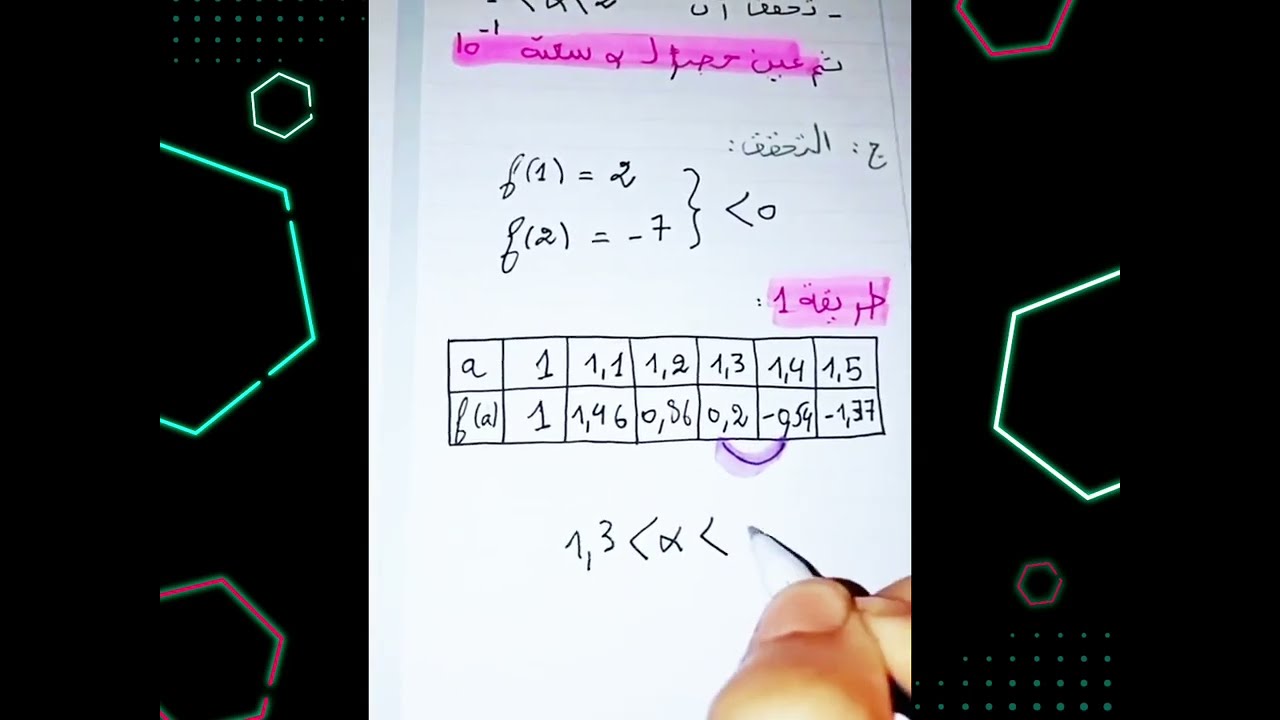 ثم عين حصرا لـ α سعته 10⁻¹
ج: التحقق:
f(1) = 2
f(2) = -7 } < 0
طريقة 1:
a 1 1,1 1,2 1,3 1,4 1,5
f(a) 1 1,46 0,86 0,2 -0,54 -1,37
1,3 < α <